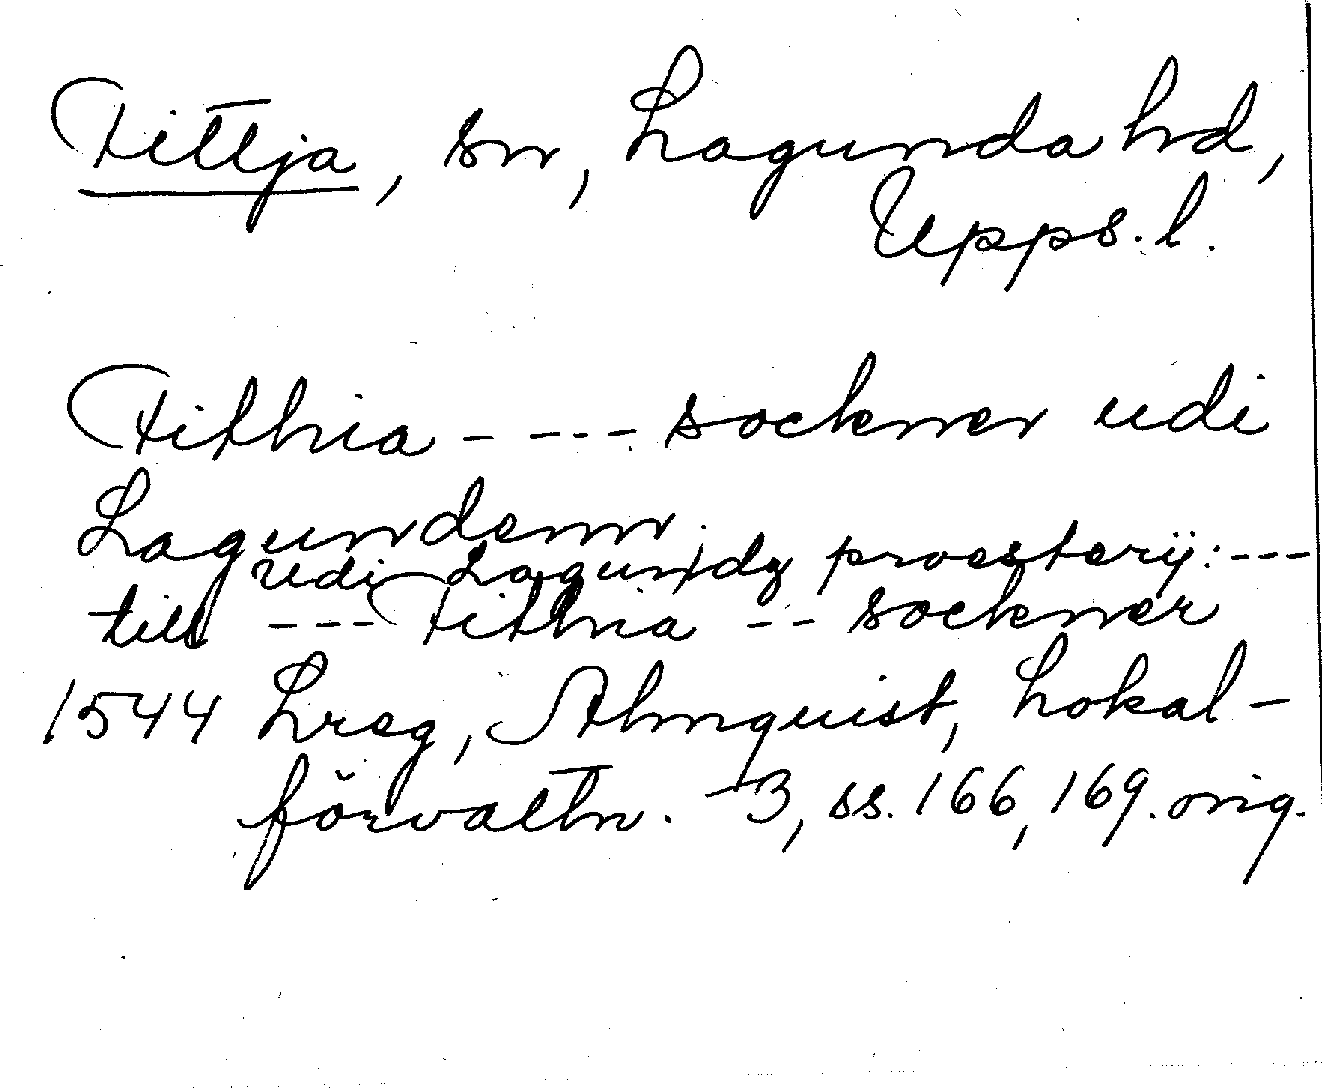 Fittja, sn, Lagunda hd,
Upps. l.
Fithia - - - - - sockner udi
Lagundenn.
udi Lagundz proesterij: - - -
till - - - Fithia - - sockner
1544 Lreg, Almquist, Lokal-
förvaltn. 3, ss. 166, 169. orig.